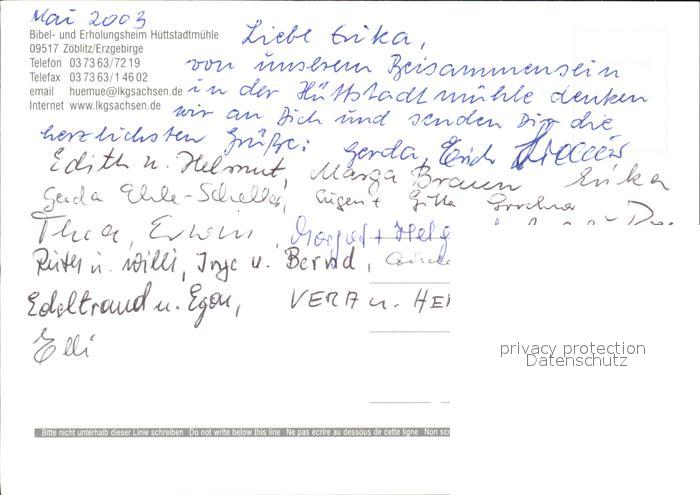 Mai 2003
Bibel- und Erholungsheim Hüttstadtmühle
09517 Zöblitz/Erzgebirge
Telefon 0 37 3 63/72 19
Telefax 0 37 3 63/1 46 02
email huemue@lkgsachsen.de
Internet www.lkgsachsen.de
Liebe Erika,
von unserem Beisammensein
in der Hüttstadtmühle denken
wir an Dich und senden Dir die
herzlichsten Grüße: Gerda, Erich
Edith u. Helmut, Marga Braun Erika
Gerda Ehle- Eugen + Gitta
Thea, Erwin, Margot + Helg
Ruth u. Willi, Inge u. Bernd,
Edeltraud u. Egon, VERA u. HE
Elli
privacy protection
Datenschutz
Bitte nicht unterhalb dieser Linie schreiben Do not write below this line Ne pas écrire au dessous de cette ligne Non scr